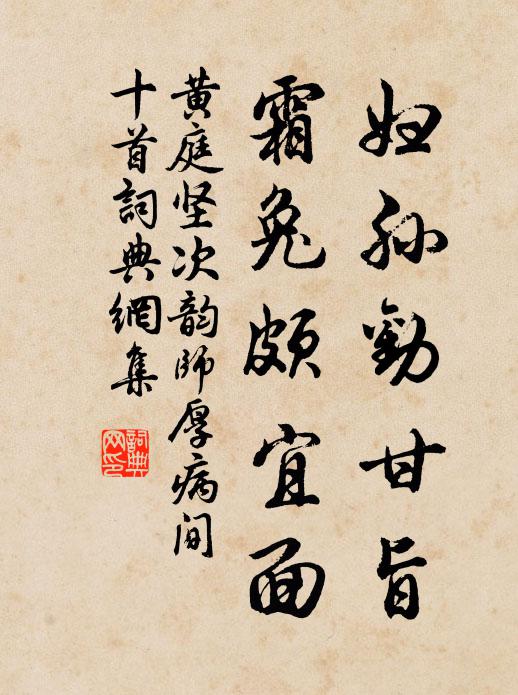 妇孙劝甘旨
霜兔颇宜面
黄庭坚次韵師厚病间
十首詞典網集
詞典网印